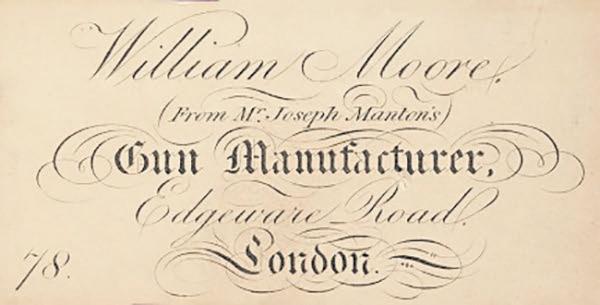 William Moore.
(From Mr. Joseph Manton's)
Gun Manufacturer,
Edgeware Road.
78. London.